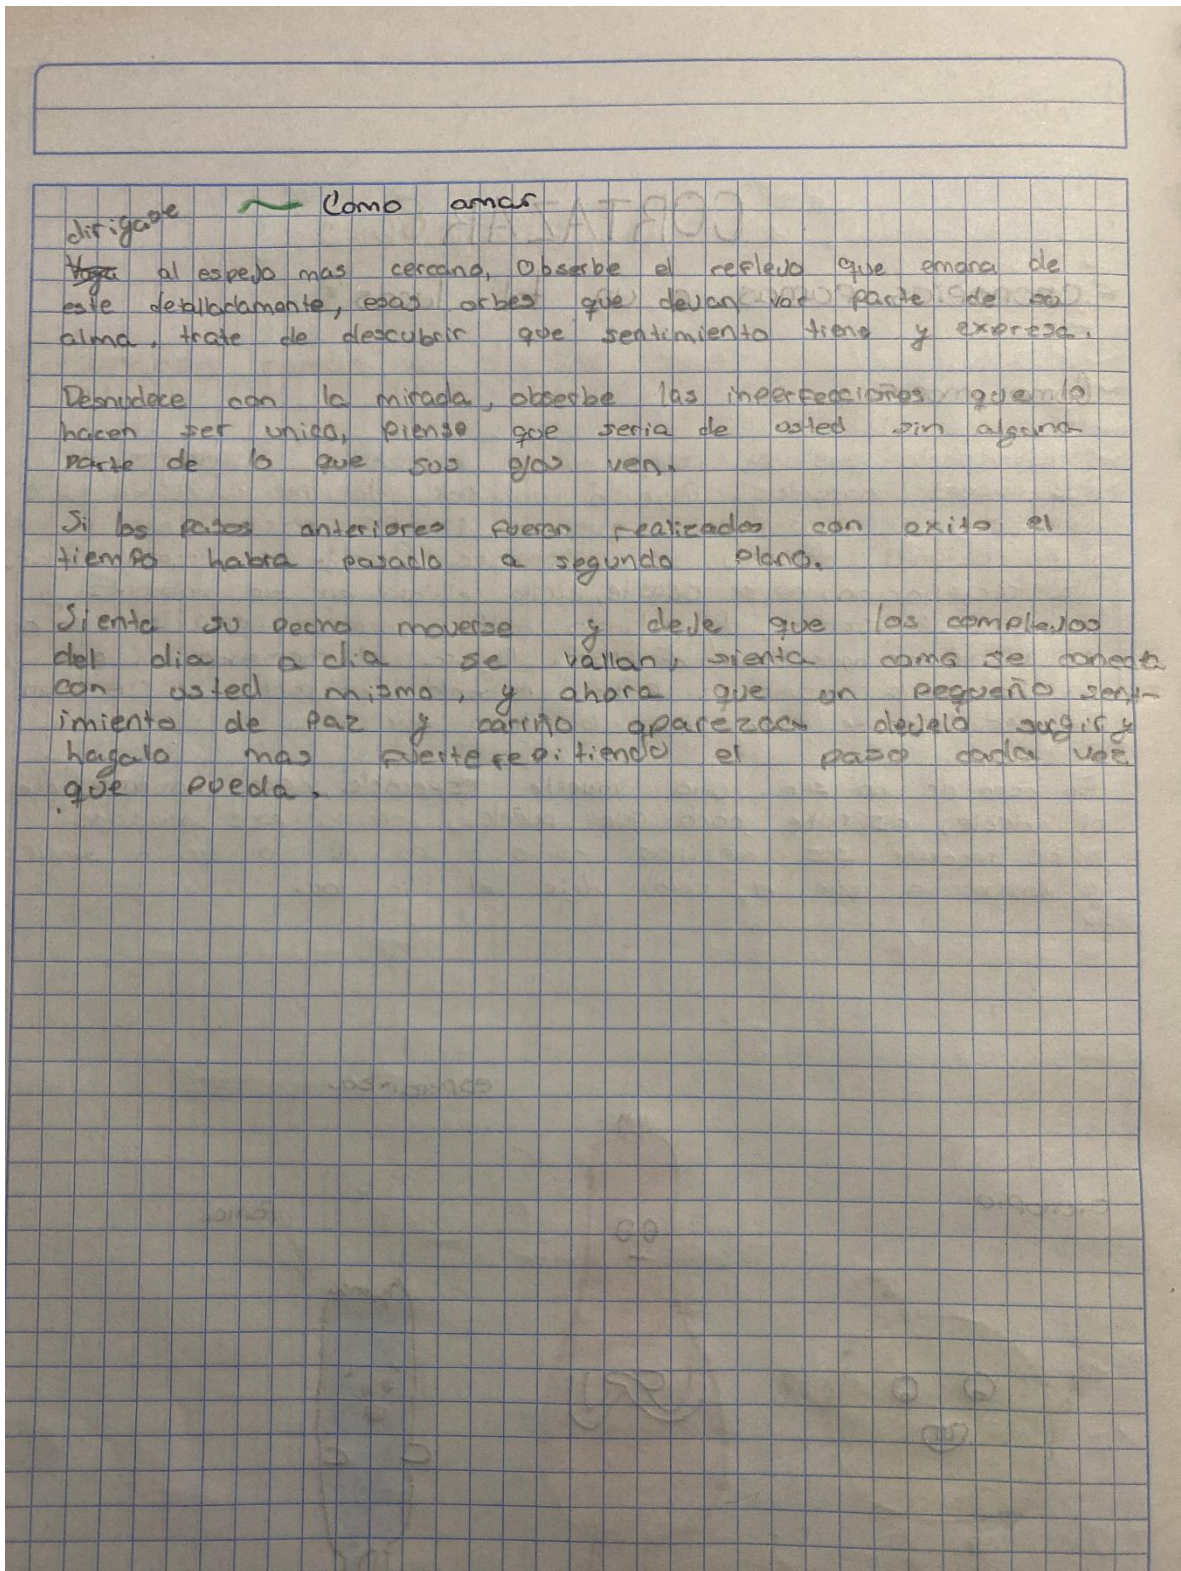 ~ Como amar
dirigase
al espejo mas cercano, Obserbe el reflejo que emana de
este detalladamente, esas orbes que dejan ver parte de su
alma, trate de descubrir que sentimiento tiene y expresa.
Desnudece con la mirada, obserbe las inperfecciones que lo
hacen ser unico, piense que seria de usted sin alguna
parte de lo que sus ojos ven.
Si los pasos anteriores fueron realizados con exito el
tiempo habra pasado a segundo plano.
Sienta su pecho moverse y deje que los complejos
del dia a dia se vallan, sienta como se conecta
con usted mismo, y ahora que un pequeño sent-
imiento de paz y cariño aparezca dejelo surgir y
hagalo mas fuerte repitiendo el paso cada vez
que pueda.